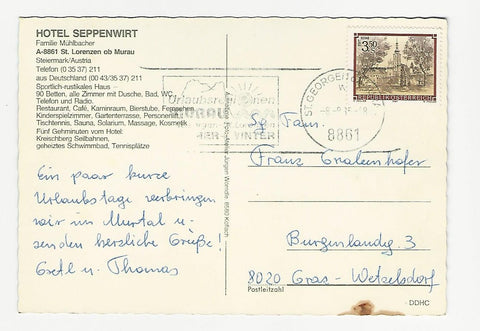 HOTEL SEPPENWIRT
Familie Mühlbacher
A-8861 St. Lorenzen ob Murau
Steiermark/Austria
Telefon (0 35 37) 211
aus Deutschland (00 43/35 37) 211
Sportlich-rustikales Haus -
90 Betten, alle Zimmer mit Dusche, Bad, WC,
Telefon und Radio.
Restaurant, Café, Kaminraum, Bierstube, Fernsehen,
Kinderspielzimmer, Gartenterrasse,
Tischtennis, Sauna, Solarium, Massage, Kosmetik
Fünf Gehminuten vom Hotel:
Kreischberg Seilbahnen,
geheiztes Schwimmbad, Tennisplätze
Ein paar kurze
Urlaubstage verbringen
wir im Murtal u.
senden herzliche Grüße!
Gretl u. Thomas
WINTER
ST. GEORGEN
8861
3.50
REPUBLIK ÖSTERREICH
Sg Fam.
Franz
Burgenlandg. 3
8020 Graz - Wetzelsdorf
Postleitzahl
DDHC